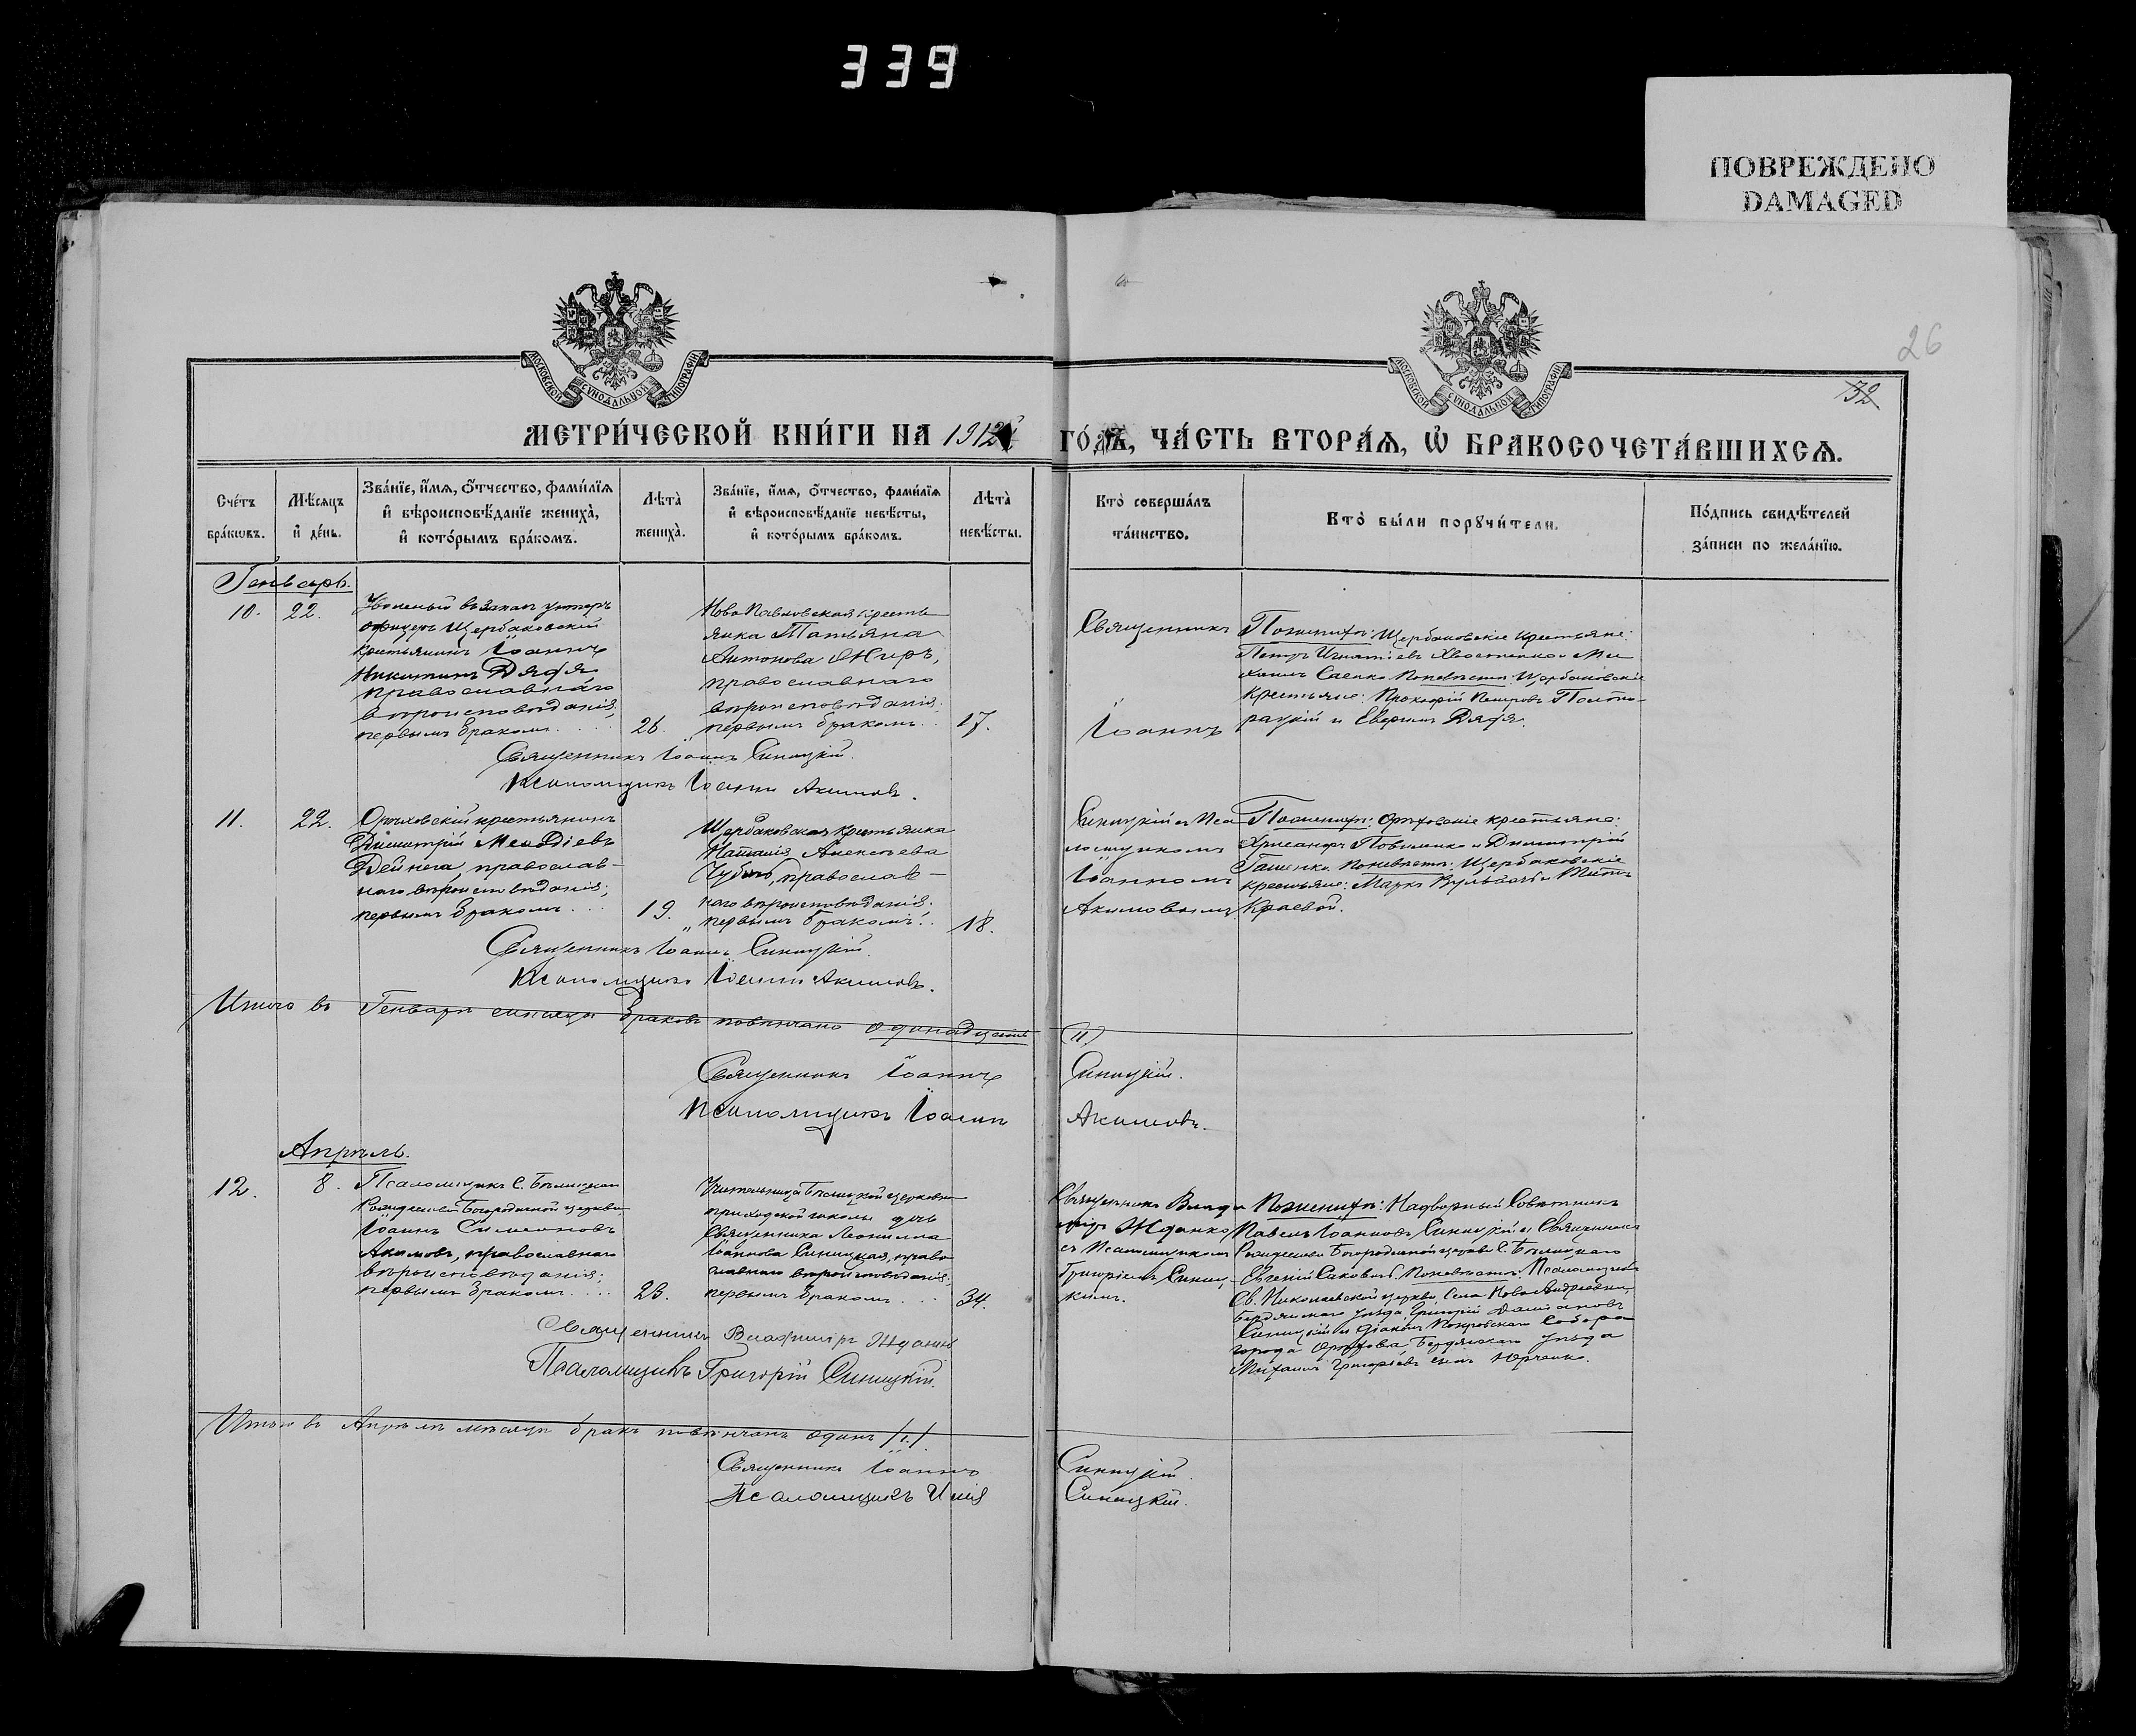 339
ПОВРЕЖДЕНО
DAMAGED
26
32
МОСКОВСКОЙ СУНОДАЛЬНОЙ ТИПОГРАФІИ
МОСКОВСКОЙ СУНОДАЛЬНОЙ ТИПОГРАФІИ
МЕТРИ́ЧЕСКОЙ КНИ́ГИ НА 1912 ГО́ДЪ, ЧА́СТЬ ВТОРА́Я, Ѡ БРАКОСОЧЕТА́ВШИХСЯ.
Сче́тъ бра́кωвъ.
Мѣ́сяцъ и҆ де́нь.
Зва́нїе, и҆́мѧ, ѻ҆́тчество, фами́лїѧ
и҆ вѣроисповѣ́данїе жениха̀,
и҆ кото́рымъ бра́комъ.
Лѣта̀ жениха̀.
Зва́нїе, и҆́мѧ, ѻ҆́тчество, фами́лїѧ
и҆ вѣроисповѣ́данїе невѣ́сты,
и҆ кото́рымъ бра́комъ.
Лѣта̀ невѣ́сты.
Кто̀ соверша́лъ
та́инство.
Кто̀ бы́ли порꙋчи́тели.
По́дпись свидѣ́телей
за́писи по жела́нїю.
Генварь.
10.
22.
въ запасъ унтеръ
офицеръ Щербаковскій
крестьянинъ Іоаннъ
Никитинъ Дядя
православнаго
вѣроисповѣданія,
первымъ бракомъ
26.
Ново Павловская кресть
янка Татьяна
Антонова Жиръ,
православнаго
вѣроисповѣданія,
первымъ бракомъ
17.
Священникъ
Іоаннъ
По женихѣ: Щербаковскіе крестьяне:
Петръ Игнатіевъ и Ми
хаилъ Саенко. По невѣстѣ: Щербаковскіе
крестьяне: Прокофій Петровъ Полто-
рацкій и Ефремъ Дядя.
Священникъ Іоаннъ Синицкій.
Псаломщикъ Іоаннъ Акимовъ.
11.
22.
Орѣховскій крестьянинъ
Димитрій Меѳодіевъ
Дейнега, православ-
наго вѣроисповѣданія;
первымъ бракомъ
19.
Щербаковская крестьянка
Наталія Алексѣева
православ-
наго вѣроисповѣданія.
первымъ бракомъ
18.
Синицкій съ Пса
ломщикомъ
Іоанномъ
Акимовымъ.
По женихѣ: Орѣховскіе крестьяне:
и Димитрій
По невѣстѣ: Щербаковскіе
крестьяне: Маркъ и Титъ
Краевой.
Священникъ Іоаннъ Синицкій.
Псаломщикъ Іоаннъ Акимовъ.
Итого въ Генварѣ мѣсяцѣ браковъ повѣнчано одинадцать (11)
Священникъ Іоаннъ Синицкій.
Псаломщикъ Іоаннъ Акимовъ.
Апрѣль.
12.
8.
Псаломщикъ С. Бѣлицкой
Рождество Богородичной церкви,
Іоаннъ Симеоновъ
Акимовъ, православнаго
вѣроисповѣданія;
первымъ бракомъ
23.
Учительница Бѣлицкой церковно
приходской школы дочь
Священника Леонилла
Іоаннова Синицкая, право
славнаго вѣроисповѣданія,
первымъ бракомъ
34.
Священникъ Влади
міръ Жданко
съ Псаломщикомъ
Григоріемъ Синиц-
кимъ.
По женихѣ: Надворный Совѣтникъ
Павелъ Іоанновъ Синицкій и Священникъ
Рождество Богородичной церкви С. Бѣлицкаго
Евгеній Саковичъ. По невѣстѣ: Псаломщикъ
Св. Николаевской церкви Села Ново Андреевки,
Бердянскаго уѣзда Григорій Даміановъ
Синицкій и діаконъ Покровскаго Собора
города Орѣхова, Бердянскаго уѣзда
Михаилъ Григоріевъ сынъ Юрченко.
Священникъ Владиміръ Жданко
Псаломщикъ Григорій Синицкій.
Итого въ Апрѣлѣ мѣсяцѣ бракъ повѣнчанъ одинъ /1/.
Священникъ Іоаннъ Синицкій.
Псаломщикъ Илія Синицкій.